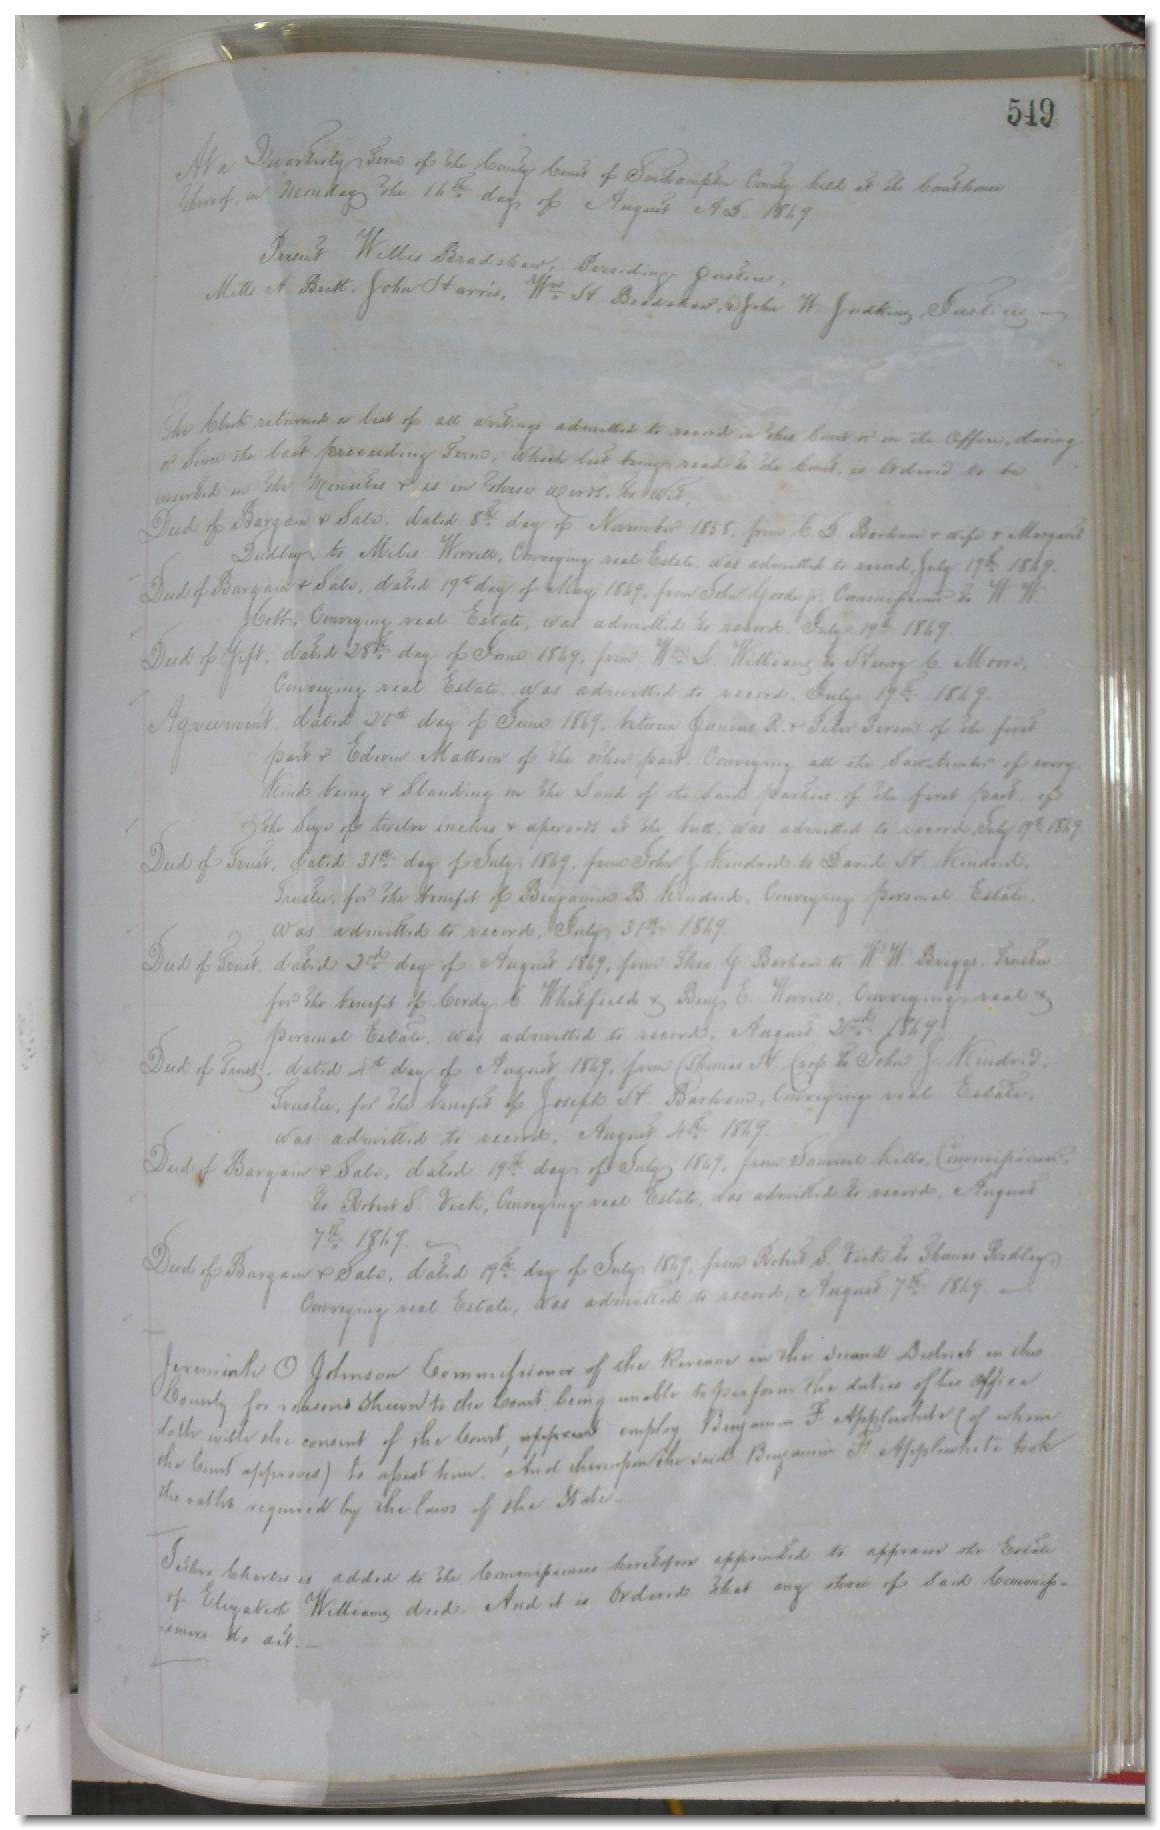 549
At a Quarterly Term of the County Court of Southampton County held at the Courthouse
thereof, on Monday the 16th day of August A.D. 1869
Present Willis Bradshaw, Presiding Justice,
Mills A. Britt, John Harris, Wm H Bradshaw, & John W Judkins, Justices
The Clerk returned a list of all writings admitted to record in this Court or in the Office, during
or Since the last preceeding Term, which list being read to the Court, is Ordered to be
inserted in the Minutes & is in these words, to wit,
Deed of Bargain & Sale, dated 8th day of November 1858, from C D Barham & wife & Margaret
Dudley, to Miles Worrell, Conveying real Estate, was admitted to record, July 19th 1869.
Deed of Bargain & Sale, dated 19th day of May 1869, from John Goode jr. Commissioner to W W
Cobb, Conveying real Estate, was admitted to record, July 19th 1869.
Deed of Gift, dated 28th day of June 1869, from Wm S. Williams to Henry C. Moore,
Conveying real Estate, was admitted to record, July 19th 1869.
Agreement, dated 20th day of June 1869, between R. & Peter Person of the first
part & Edwin Mattson of the other part Conveying all the Saw timber of every
Kind being & Standing on the Land of the Said parties of the first part, of
the Size of twelve inches & upwards at the butt, was admitted to record July 19th 1869
Deed of Trust, dated 31st day of July 1869, from John J Kindred to David H. Kindred,
Trustee, for the benefit of Benjamin B. Kindred, Conveying personal Estate,
was admitted to record, July 31st 1869.
Deed of Trust, dated 2nd day of August 1869, from Theo. G Barham to W W Briggs, Trustee
for the benefit of Cordy C Whitfield & Benj E. Worrell, Conveying real &
personal Estate, was admitted to record, August 2nd 1869
Deed of Trust, dated 4th day of August 1869, from Thomas H. to John J. Kindred,
Trustee, for the benefit of Joseph H. Barham, Conveying real Estate,
was admitted to record, August 4th 1869.
Deed of Bargain & Sale, dated 19th day of July 1869, from Samuel Kello, Commissioner,
to Robert S. Vick, Conveying real Estate, was admitted to record, August
7th 1869.
Deed of Bargain & Sale, dated 19th day of July 1869, from Robert S. Vick to Thomas Ridley,
Conveying real Estate, was admitted to record, August 7th 1869.
Jeremiah O Johnson Commissioner of the Revenue in the second District in this
County for reasons Shewn to the Court, being unable to perform the duties of his Office
doth with the consent of the Court, employ Benjamin F. Applewhite (of whom
the Court approves) to assist him. And thereupon the said Benjamin F. Applewhite took
the oaths required by the laws of the State.
Charles is added to the Commissioners heretofore appointed to appraise the Estate
of Elizabeth Williams decd. And it is Ordered that any three of Said Commiss-
ioners do act.